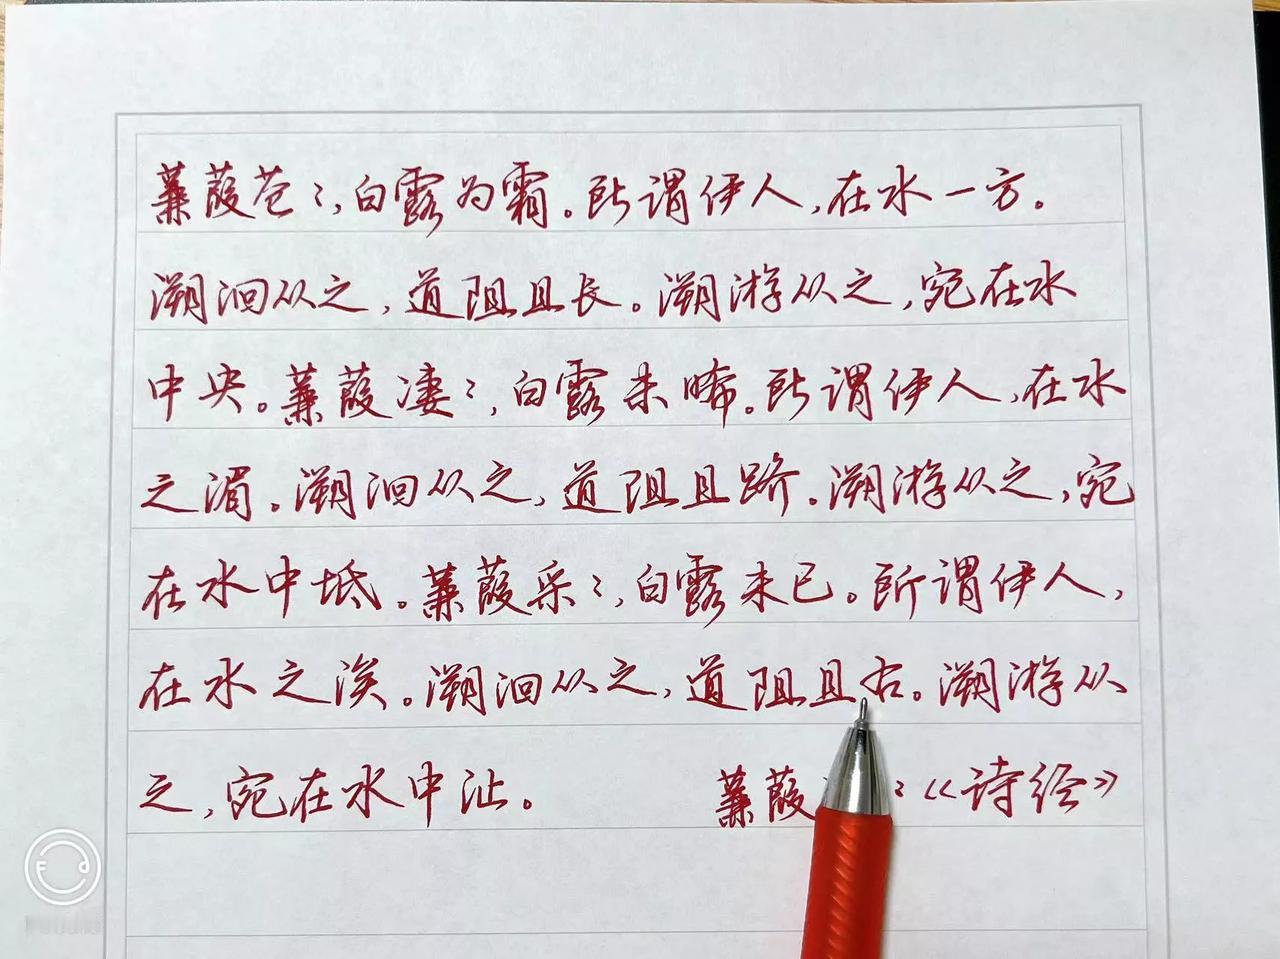 蒹葭苍〻,白露为霜。所谓伊人,在水一方。
溯洄从之,道阻且长。溯游从之,宛在水
中央。蒹葭凄〻,白露未晞。所谓伊人,在水
之湄。溯洄从之,道阻且跻。溯游从之,宛
在水中坻。蒹葭采〻,白露未已。所谓伊人,
在水之涘。溯洄从之,道阻且右。溯游从
之,宛在水中沚。
蒹葭 〻《诗经》